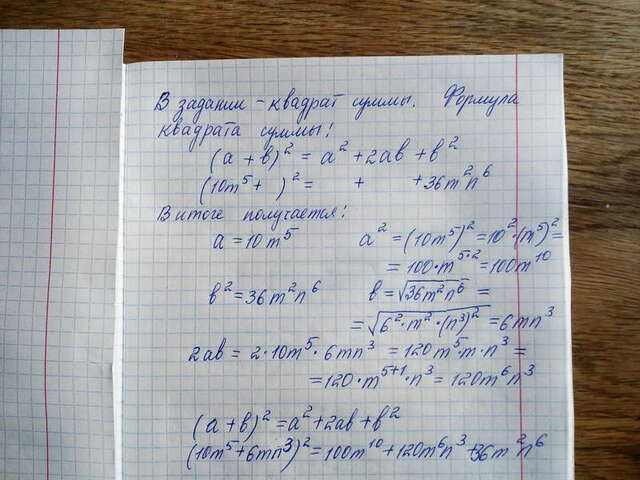 В задании - квадрат суммы. Формула
квадрата суммы:
(a + b)² = a² + 2ab + b²
(10m⁵ + )² = + + 36m²n⁶
В итоге получается:
a = 10m⁵ a² = (10m⁵)² = 10²·(m⁵)² =
= 100·m⁵·² = 100m¹⁰
b² = 36m²n⁶ b = √36m²n⁶ =
= √6²·m²·(n³)² = 6mn³
2ab = 2·10m⁵·6mn³ = 120m⁵·m·n³ =
= 120·m⁵⁺¹·n³ = 120m⁶n³
(a + b)² = a² + 2ab + b²
(10m⁵ + 6mn³)² = 100m¹⁰ + 120m⁶n³ + 36m²n⁶